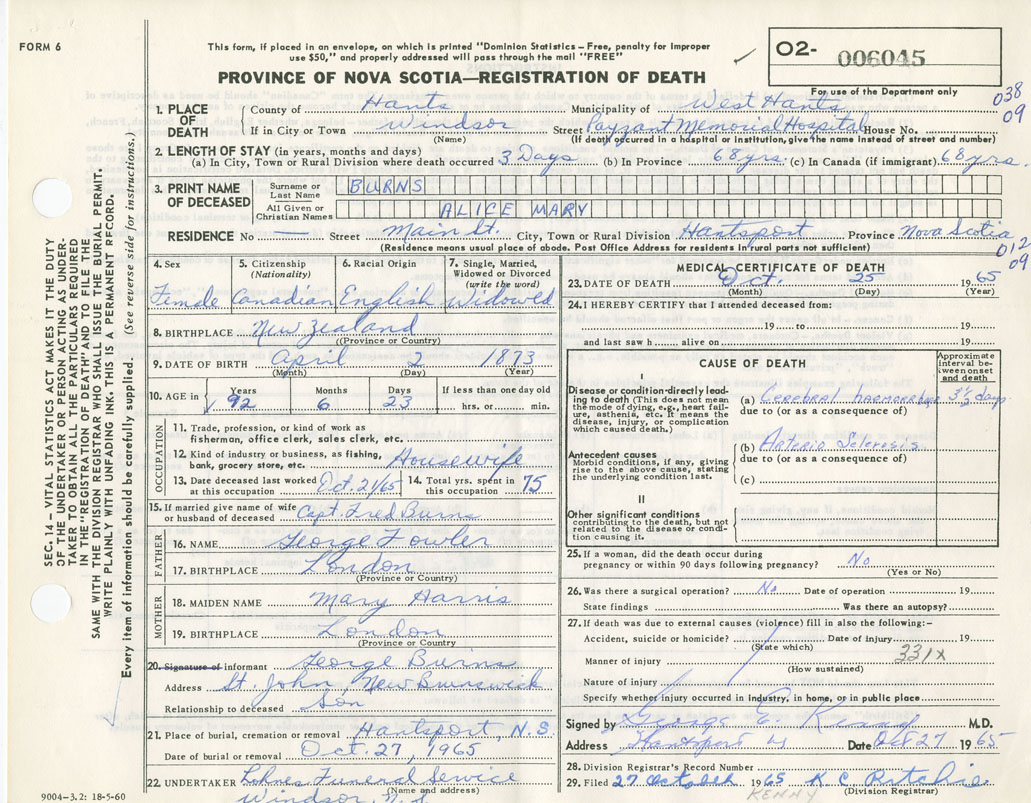 FORM 6
This form, if placed in an envelope, on which is printed "Dominion Statistics—Free, penalty for improper
use $50," and properly addressed will pass through the mail "FREE"
PROVINCE OF NOVA SCOTIA—REGISTRATION OF DEATH
02- 006045
For use of the Department only
038
09
1. PLACE OF DEATH
County of Hants Municipality of West Hants
If in City or Town Windsor Street Payzant Memorial Hospital House No.
(Name) (If death occurred in a hospital or institution, give the name instead of street and number)
2. LENGTH OF STAY (in years, months and days)
(a) In City, Town or Rural Division where death occurred 3 Days (b) In Province 68 yrs. (c) In Canada (if immigrant) 68 yrs.
3. PRINT NAME OF DECEASED
Surname or Last Name BURNS
All Given or Christian Names ALICE MARY
RESIDENCE No — Street Main St. City, Town or Rural Division Hantsport Province Nova Scotia
(Residence means usual place of abode. Post Office Address for residents in rural parts not sufficient)
012
09
4. Sex 5. Citizenship (Nationality) 6. Racial Origin 7. Single, Married, Widowed or Divorced (write the word)
Female Canadian English Widowed
8. BIRTHPLACE New Zealand
(Province or Country)
9. DATE OF BIRTH April 2 1873
(Month) (Day) (Year)
10. AGE in Years Months Days If less than one day old
92 6 23 hrs. or min.
OCCUPATION
11. Trade, profession, or kind of work as
fisherman, office clerk, sales clerk, etc.
12. Kind of industry or business, as fishing,
bank, grocery store, etc. Housewife
13. Date deceased last worked at this occupation Oct. 21/65 14. Total yrs. spent in this occupation 75
15. If married give name of wife or husband of deceased Capt. Fred Burns
FATHER
16. NAME George Fowler
17. BIRTHPLACE London
(Province or Country)
MOTHER
18. MAIDEN NAME Mary Harris
19. BIRTHPLACE London
(Province or Country)
20. Signature of informant George Burns
Address St. John, New Brunswick
Relationship to deceased Son
21. Place of burial, cremation or removal Hantsport, N.S.
Date of burial or removal Oct. 27, 1965
22. UNDERTAKER Funeral Service
(Name and address)
Windsor, N.S.
MEDICAL CERTIFICATE OF DEATH
23. DATE OF DEATH Oct. 25 1965
(Month) (Day) (Year)
24. I HEREBY CERTIFY that I attended deceased from:
19 to 19
and last saw h alive on 19
CAUSE OF DEATH
Approximate interval between onset and death
I
Disease or condition directly leading to death (This does not mean the mode of dying, e.g., heart failure, asthenia, etc. It means the disease, injury, or complication which caused death.)
(a) Cerebral haemorrhage 3½ days
due to (or as a consequence of)
Antecedent causes
Morbid conditions, if any, giving rise to the above cause, stating the underlying condition last.
(b) Arterio Sclerosis
due to (or as a consequence of)
(c)
II
Other significant conditions
contributing to the death, but not related to the disease or condition causing it.
25. If a woman, did the death occur during
pregnancy or within 90 days following pregnancy? No
(Yes or No)
26. Was there a surgical operation? No Date of operation 19
State findings Was there an autopsy?
27. If death was due to external causes (violence) fill in also the following:—
Accident, suicide or homicide? Date of injury 19
(State which)
Manner of injury 331X
(How sustained)
Nature of injury
Specify whether injury occurred in industry, in home, or in public place
Signed by George E. Kenny M.D.
Address Hantsport NS Date Oct 27 1965
28. Division Registrar's Record Number
29. Filed 27 October 1965 R C Ritchie
KENNY (Division Registrar)
SEC. 14—VITAL STATISTICS ACT MAKES IT THE DUTY
OF THE UNDERTAKER OR PERSON ACTING AS UNDER-
TAKER TO OBTAIN ALL THE PARTICULARS REQUIRED
IN THE "REGISTRATION OF DEATH" AND TO FILE THE
SAME WITH THE DIVISION REGISTRAR WHO SHALL ISSUE THE BURIAL PERMIT.
WRITE PLAINLY WITH UNFADING INK. THIS IS A PERMANENT RECORD.
Every item of information should be carefully supplied. (See reverse side for instructions.)
9004-3.2: 18-5-60